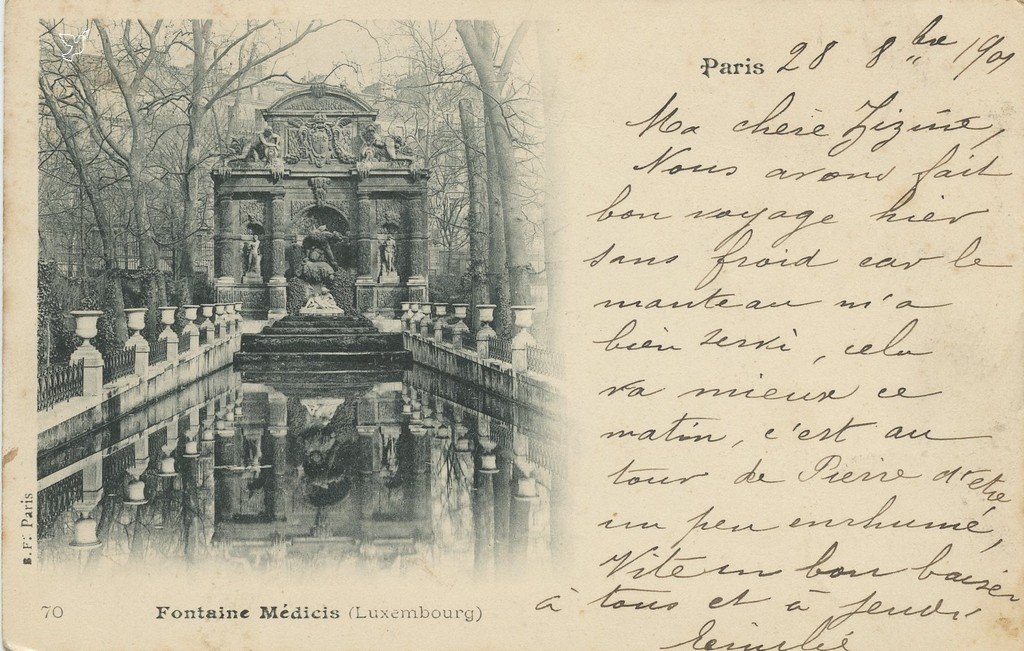 Paris 28 8bre 1901
Ma chère Zizine,
Nous avons fait
bon voyage hier
sans froid car le
manteau m'a
bien servi, cela
va mieux ce
matin, c'est au
tour de Pierre d'etre
un peu enrhumé,
Vite un bon baiser
à tous et à jeudi
B. F. Paris
70 Fontaine Médicis (Luxembourg)